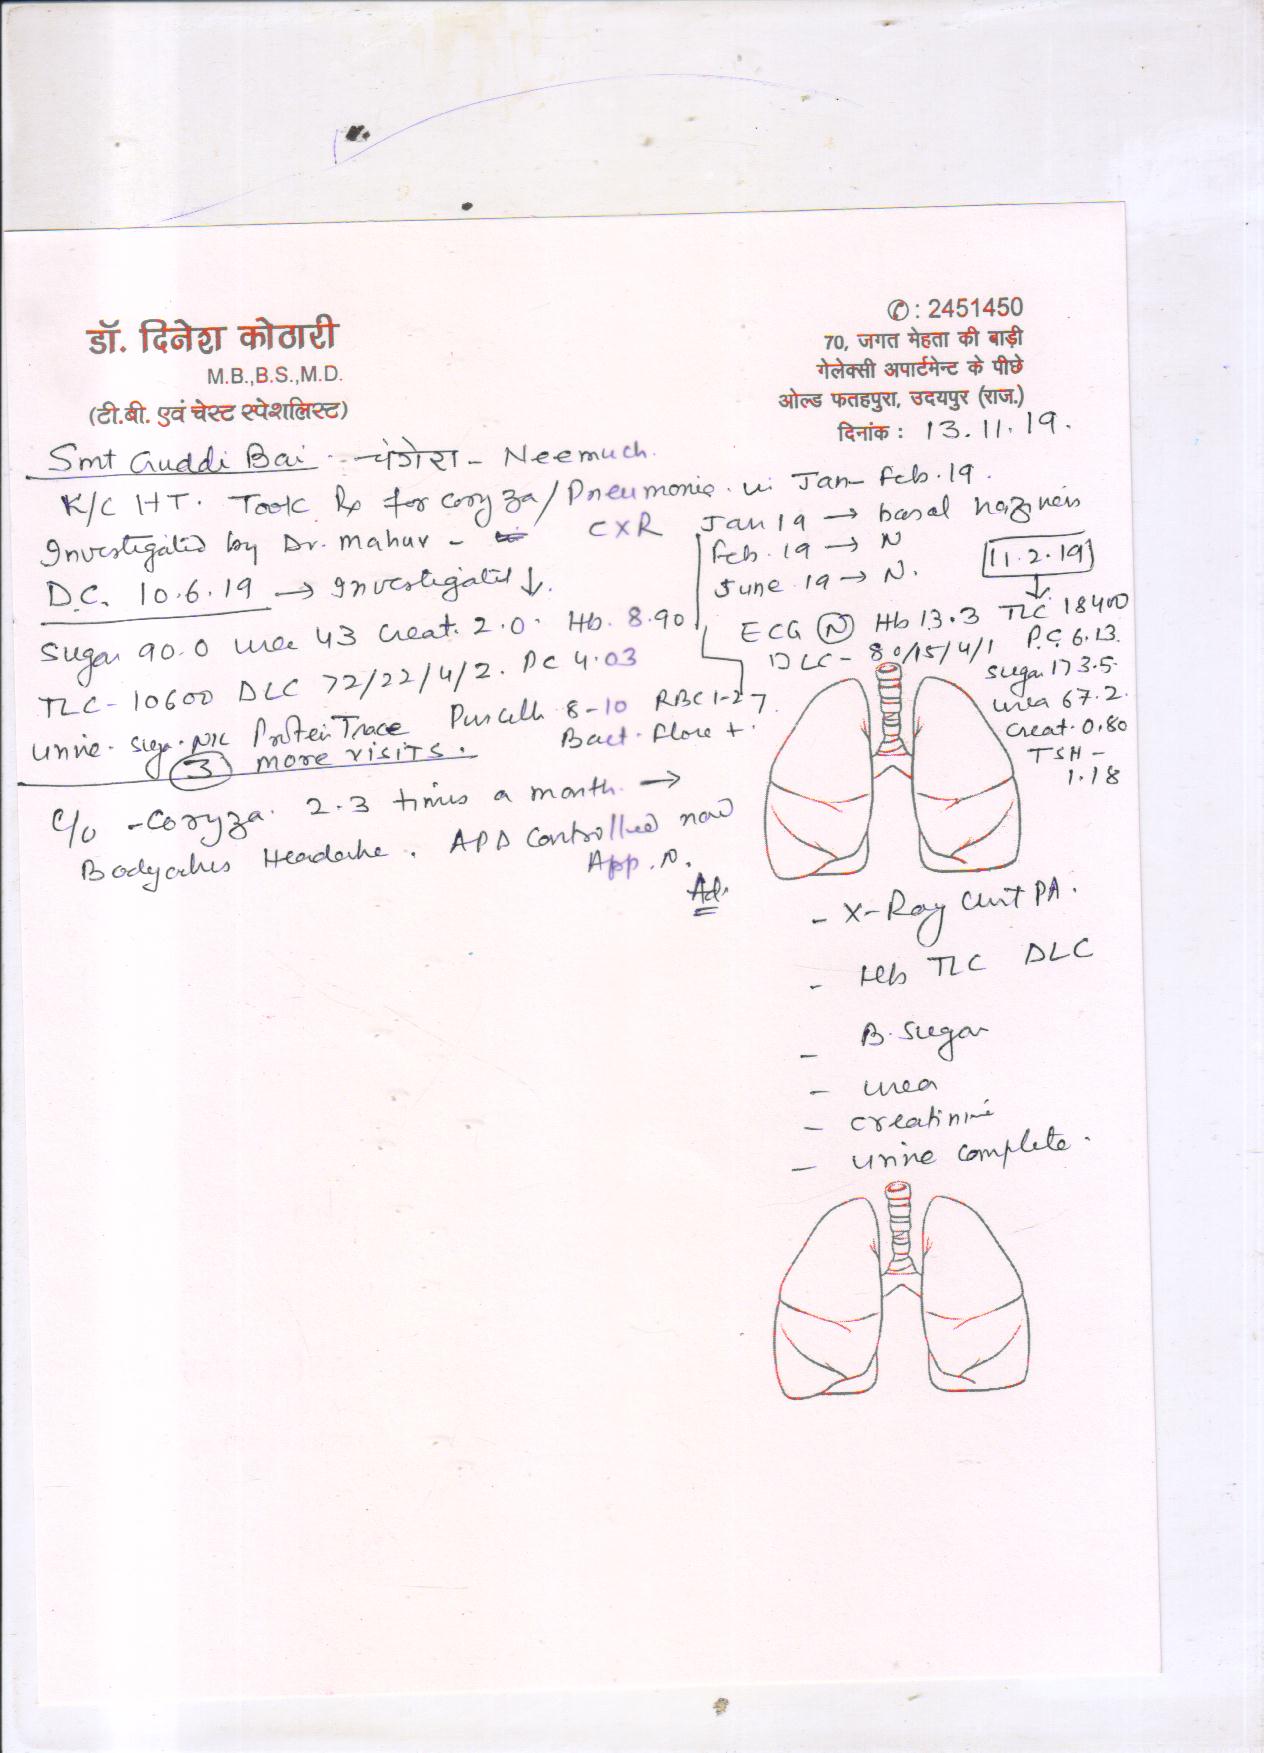 डॉ. दिनेश कोठारी
M.B.,B.S.,M.D.
(टी.बी. एवं चेस्ट स्पेशलिस्ट)
✆ : 2451450
70, जगत मेहता की बाड़ी
गेलेक्सी अपार्टमेन्ट के पीछे
ओल्ड फतहपुरा, उदयपुर (राज.)
दिनांक : 13.11.19.
Smt Guddi Bai - चंगेरा - Neemuch.
K/C HT. Took Rx for coryza/Pneumonia in Jan- Feb.19.
Investigated by Dr. Mahur -
CXR
Jan 19 → basal haziness
Feb. 19 → N
June 19 → N.
D.C. 10.6.19 → Investigated ↓.
Sugar 90.0 urea 43 Creat. 2.0. Hb. 8.90
TLC- 10600 DLC 72/22/4/2. PC 4.03
Urine - Sug. Nil Protein Trace Puscells 8-10 RBC 1-2
Bact. Flore +.
3 more visits.
11.2.19
↓
ECG N Hb 13.3 TLC 18400
DLC - 80/15/4/1 P.C. 6.13.
Sugar 173.5.
urea 67.2.
Creat. 0.80
TSH -
1.18
C/o - Coryza. 2.3 times a month. →
Bodyaches Headache. APD controlled now
App. N.
Ad.
- X-Ray Chest PA.
- Hb TLC DLC
- B. Sugar
- urea
- creatinine
- urine complete.